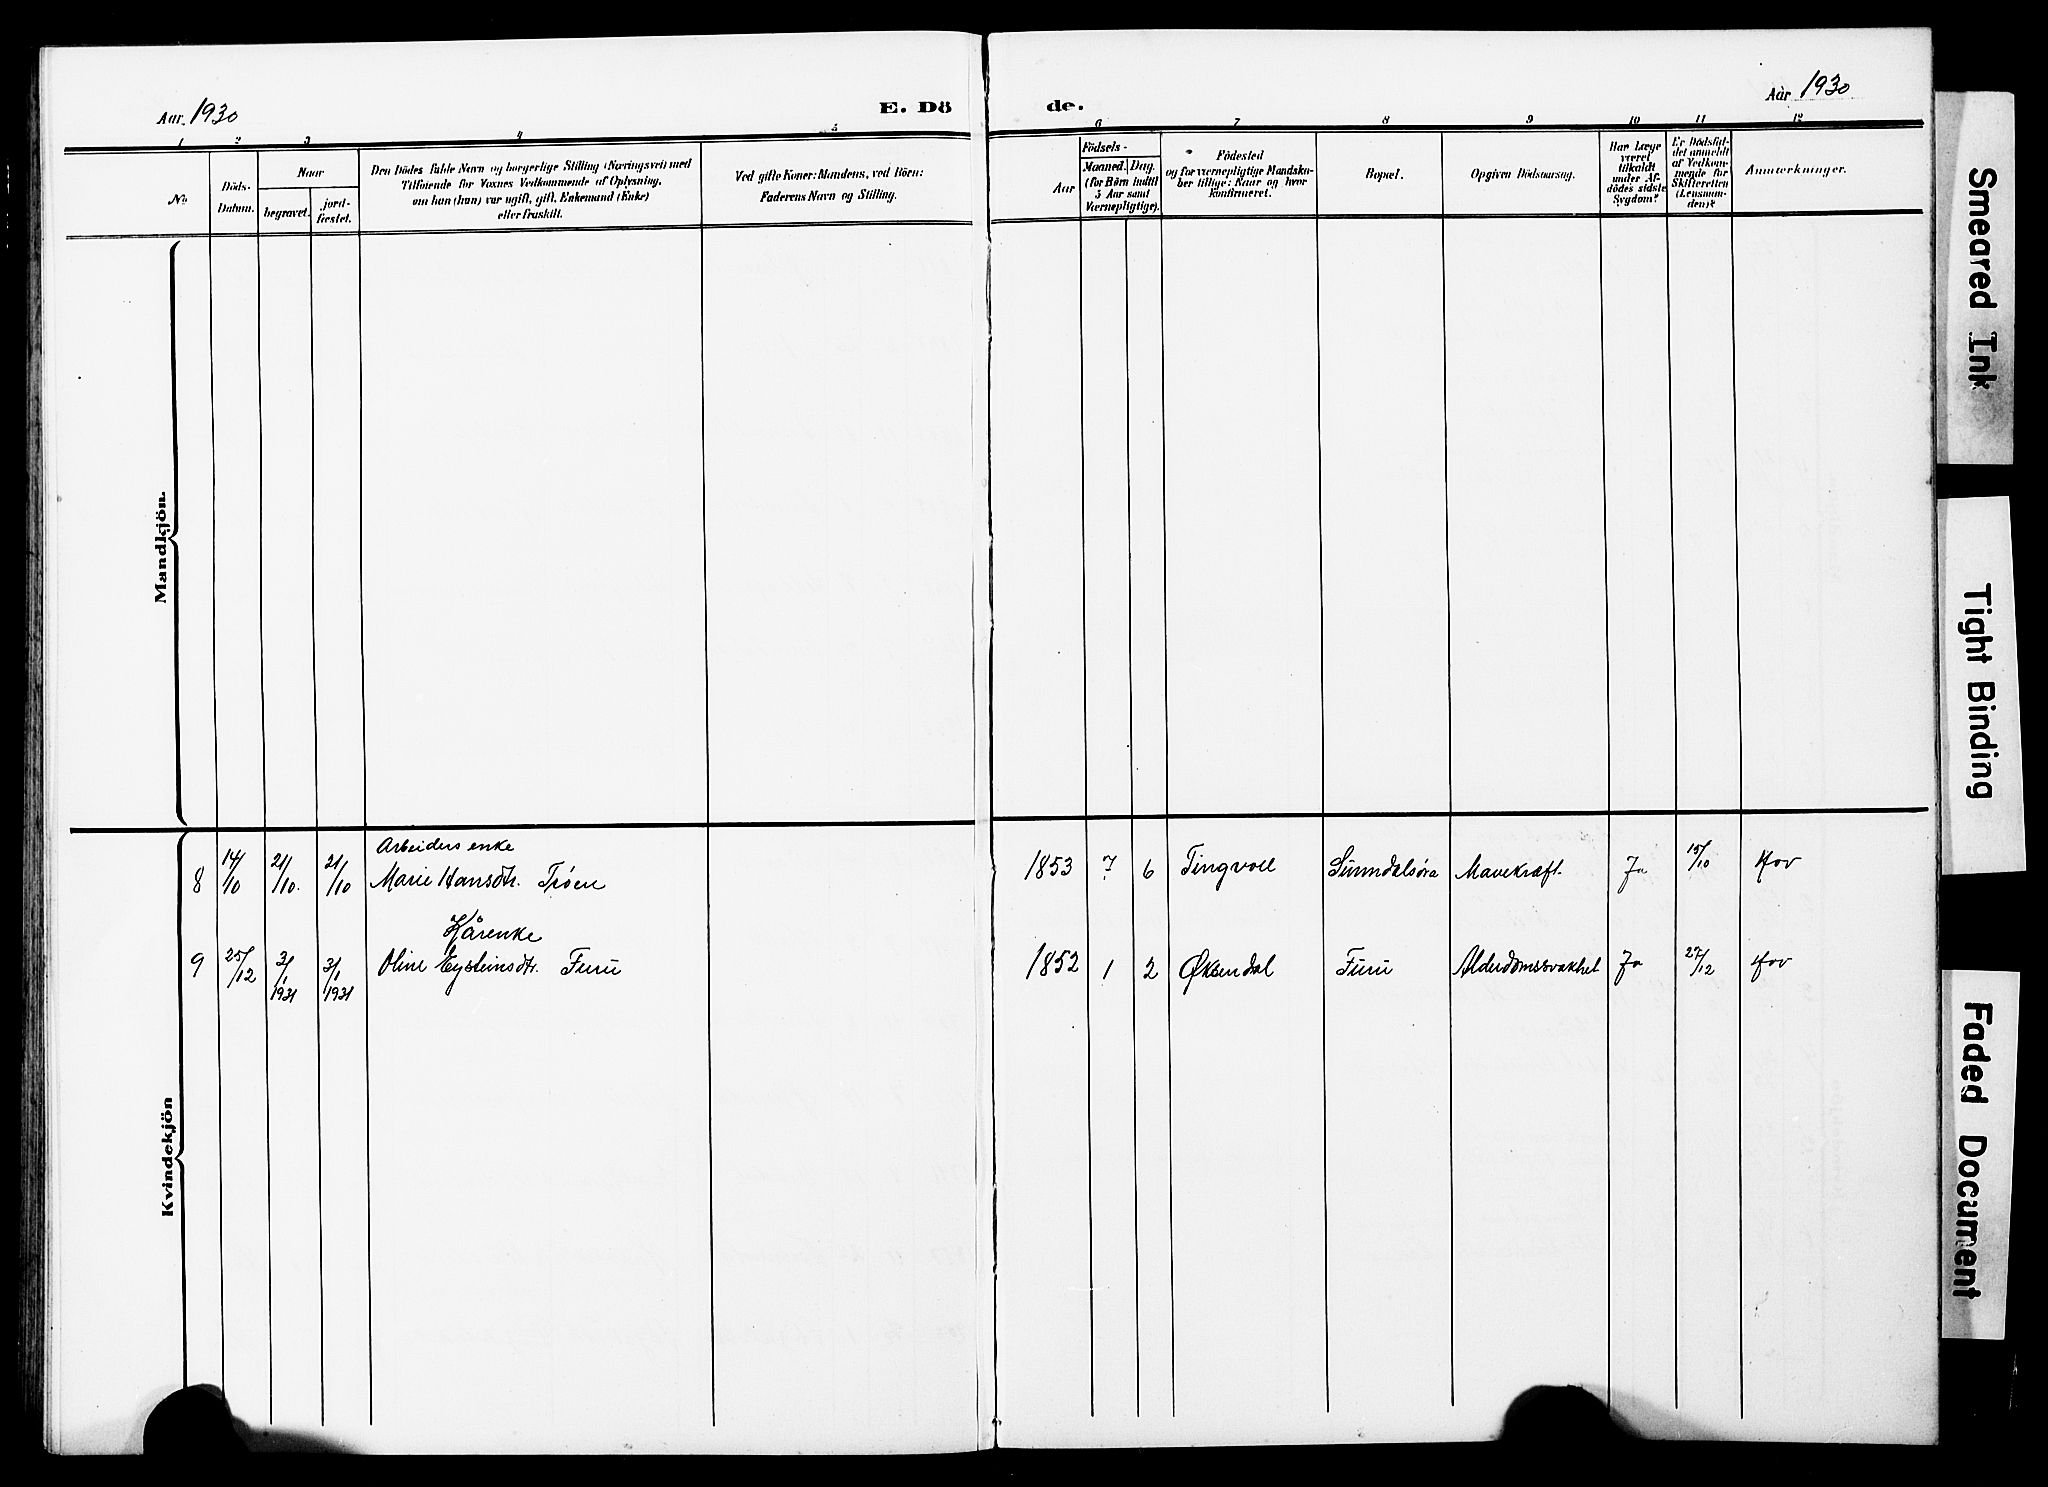 Aar 1930
E. Dö
de.
Aar 1930
1 2 3 4 5 6 7 8 9 10 11 12
No
Döds-
Datum.
Naar
begravet.
jord-
fæstet.
Den Dödes fulde Navn og borgerlige Stilling (Næringsvei) med
Tilföiende for Voxnes Vedkommende af Oplysning,
om han (hun) var ugift, gift, Enkemand (Enke)
eller fraskilt.
Ved gifte Koner: Mandens, ved Börn:
Faderens Navn og Stilling.
Födsels-
Aar
Maaned. Dag.
(for Børn indtil
5 Aar samt
Værnepligtige).
Födested
og for værnepligtige Mandskа-
ber tillige: Naar og hvor
konfirmeret.
Bopæl.
Opgiven Dödsaarsag.
Har Læge
været
tilkaldt
under Af-
dödes sidste
Sygdom?
Er Dödsfal-
det anmeldt
af Vedkom-
mende for
Skifteretten
(Lensman-
den)?
Anmerkninger.
Mandkjön.
Arbeiders enke
8 14/10 21/10. 21/10 Marie Hansdtr. Trøen 1853 7 6 Tingvoll Sunndalsøra Mavekræft. Ja 15/10 Hov
Kårenke
9 25/12 3/1 1931 3/1 1931 Oline Eysteinsdtr. Furu 1852 1 2 Øksendal Furu Alderdomssvakhet Ja 27/12 Hov
Kvindekjön
Smeared Ink
Tight Binding
Faded Document